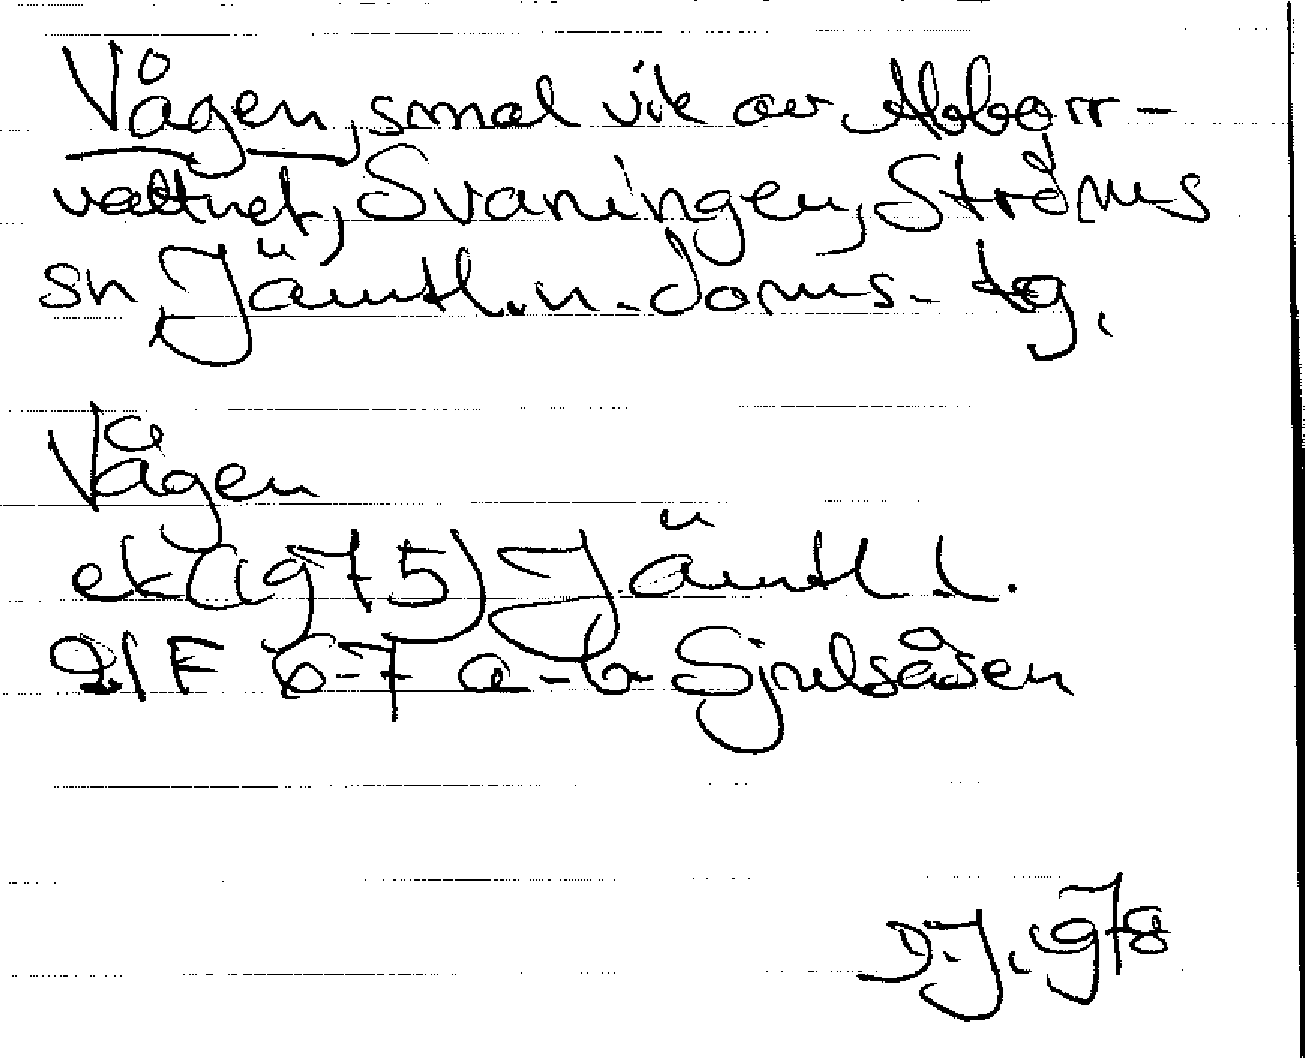 Vågen, smal vik av Abborr-
vattnet, Svaningen, Ströms
sn, Jämtl. n. doms. tg.
Vågen
ek (1975) Jämtl l.
21 F 6-7 a-b Sjulsåsen
D.J. 1978